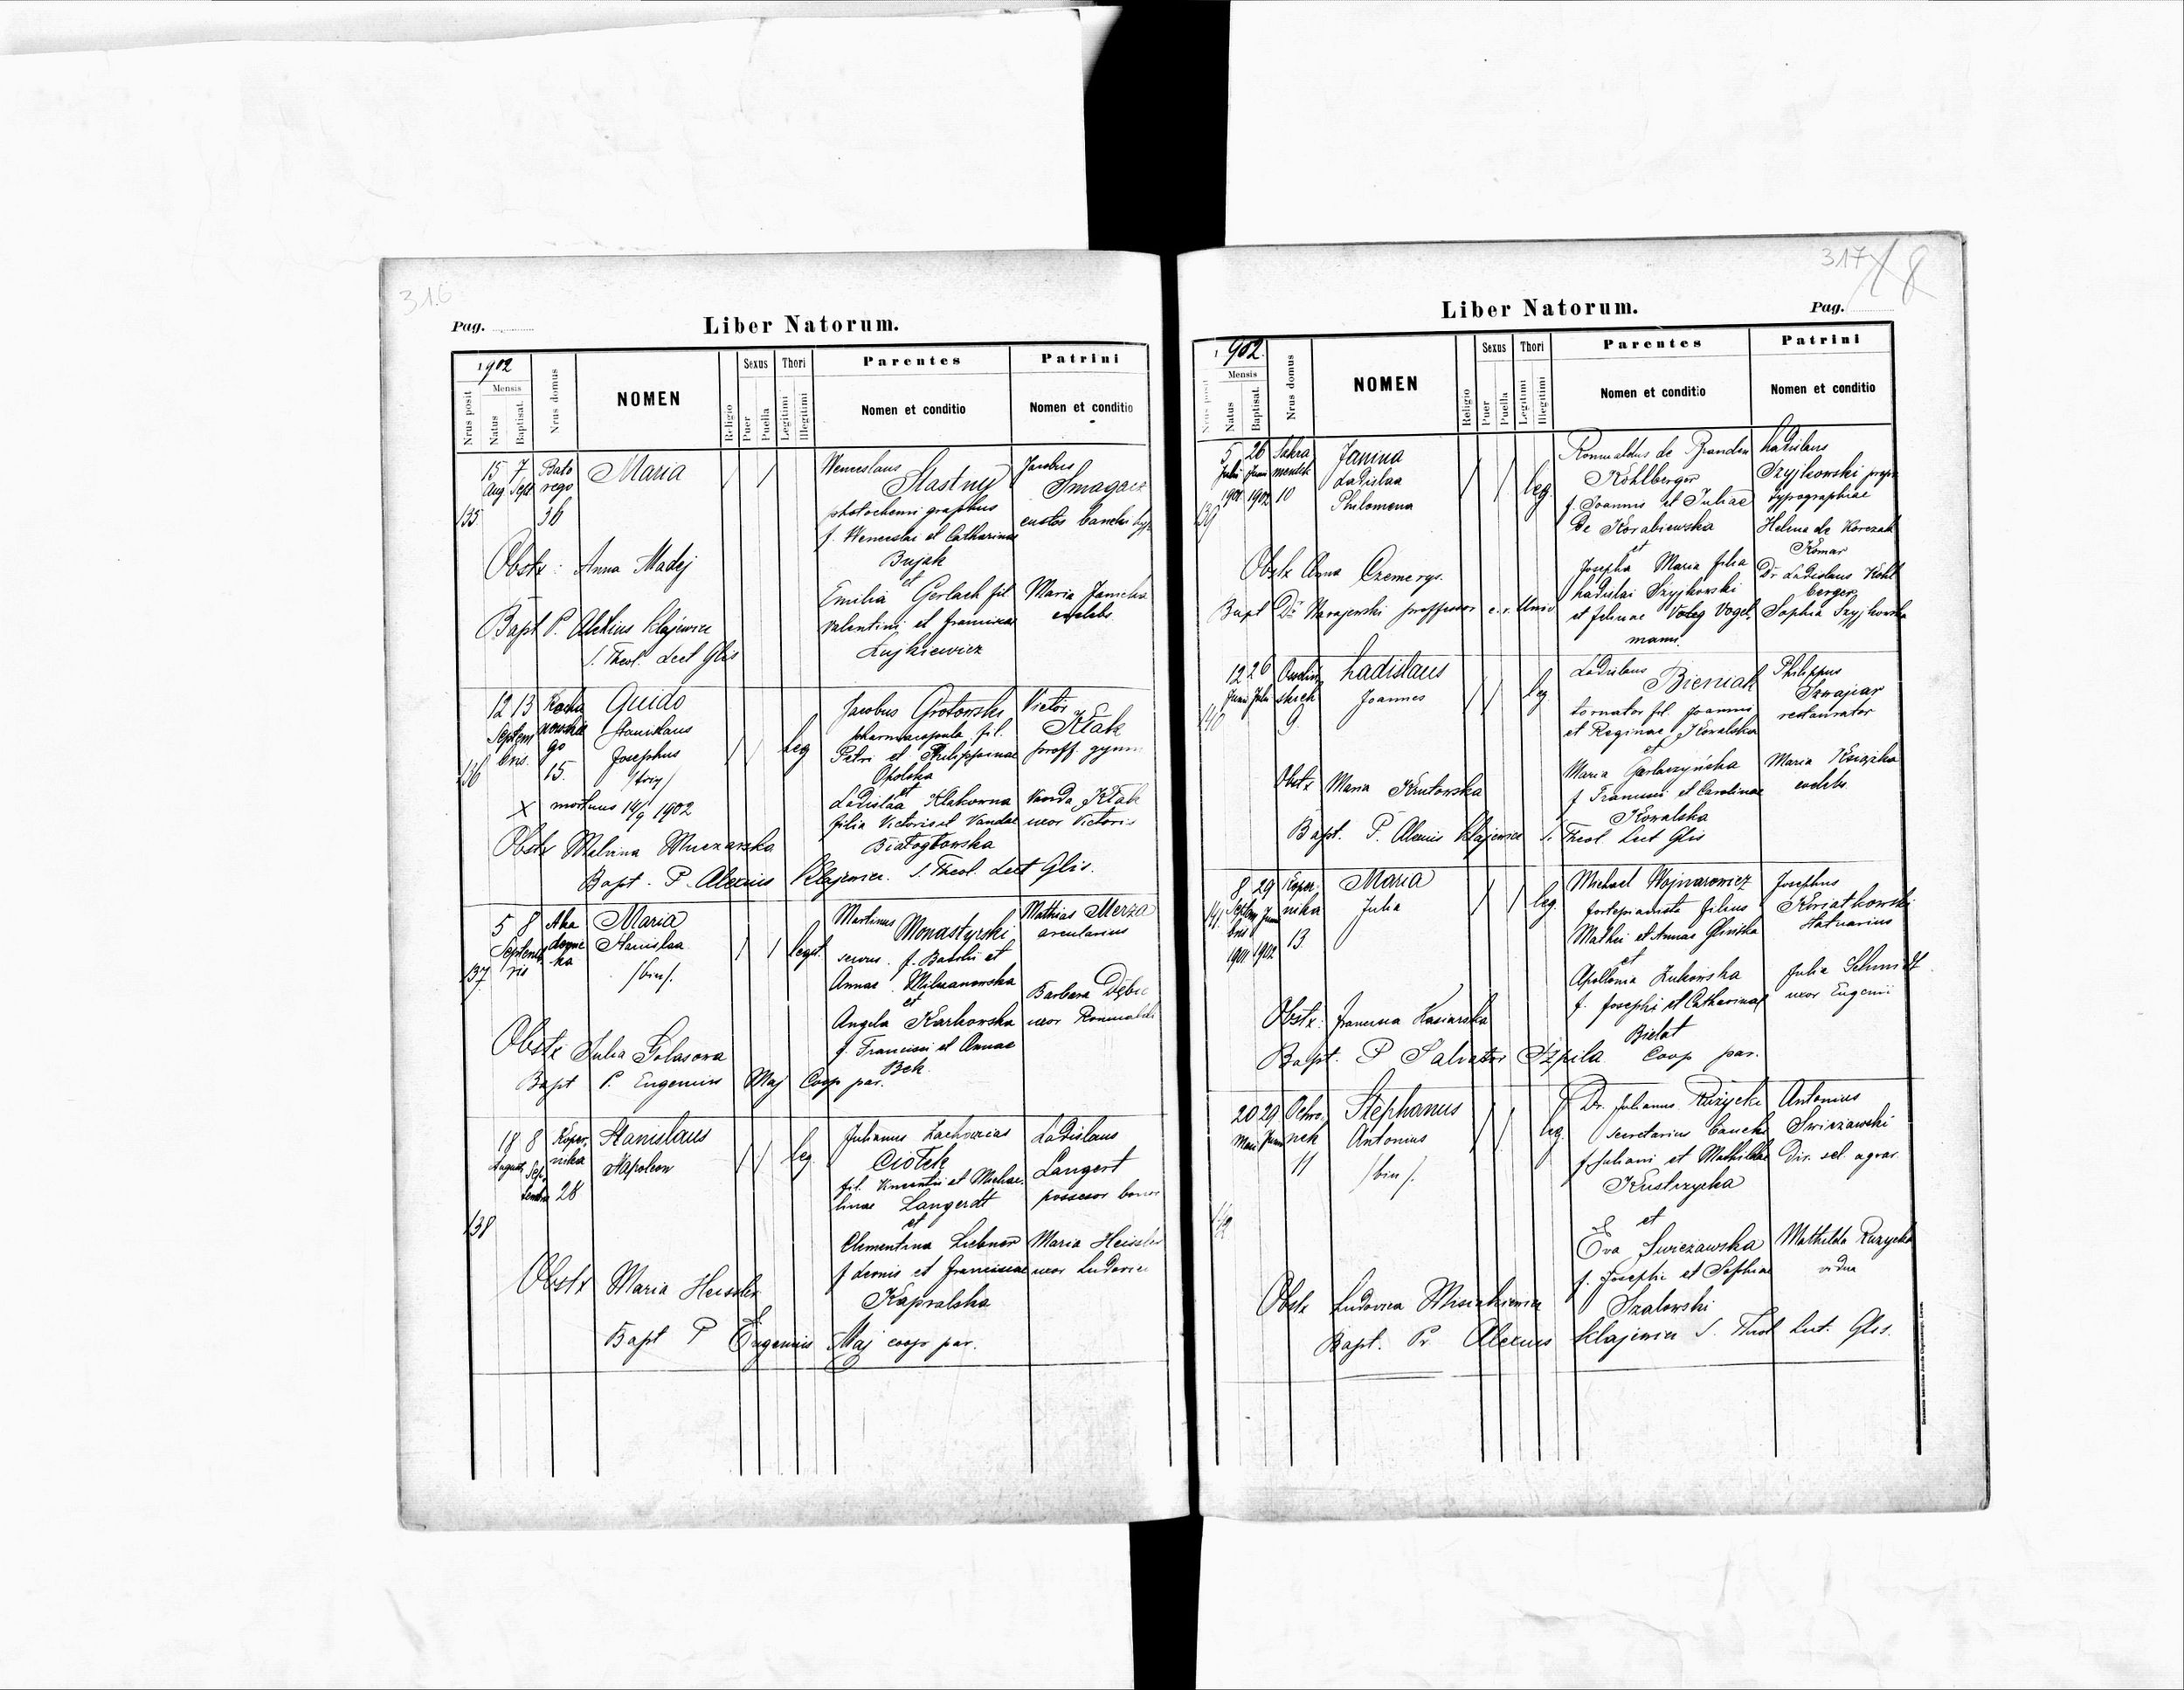 316
Pag.
Liber Natorum.
1902
Nrus posit
Mensis
Natus
Baptisat.
Nrus domus
NOMEN
Religio
Sexus
Puer
Puella
Thori
Legitimi
Illegitimi
Parentes
Nomen et conditio
Patrini
Nomen et conditio
135
15 7
Aug Sept
Bato
rego
36
Maria
Obstx: Anna Madej
Bapt P. Alexius Klajewicz
S. Theol. Lect Glis
Wenceslaus
Stastny
photochemigraphus
f. Wenceslai et Catharinae
Bujak
et
Emilia Gerlach fil
Valentini et Franciscae
Jacobus
Smagacz
custos banchi hyp
Maria Janicka
caelebs.
136
12 13
Septem
bris.
Kocha
nowskie
go
15.
Guido
Stanislaus
Josephus
/trig/
X mortuus 14/9 1902
Obstx Malvina
Bapt. P. Alexius Klajewicz. S. Theol. Lect Glis.
leg
Jacobus Grotowski
pharmacopola fil.
Petri et Philippinae
Opolska
et
Ladislaa Klakowna
filia Victoris et Vandae
Białogłowska
Victor
Kłak
proff gymn
Vanda Kłak
uxor Victoris
137
5 8
Septemb
ris
Aka
demic
ka
Maria
Stanislaa
/bin/.
Obstx Julia Golasowa
Bapt P. Eugenius Maj Coop par.
legit.
Martinus
Monastyrski
servus. f. Basilii et
Annae Milczanowska
et
Angela Karkowska
f. Francisci et Annae
Bek.
Mathias Merza
arcularius
Barbara Dębic
uxor Romualdi
138
18 8
August Sep
tembr
Koper
nika
28
Stanislaus
Napoleon
Obstx Maria Heissler
Bapt P Eugenius Maj coop par.
leg
Julianus Zacharias
Ciołek
fil. Vincentii et Michae
linae Langerdt
et
Clementina Liebner
f Leonis et Franciscae
Kapralska
Ladislaus
Langert
possesor bonor
Maria Heissler
uxor Ludovici
317
8
Liber Natorum.
Pag.
1902.
Nrus posit
Mensis
Natus
Baptisat.
Nrus domus
NOMEN
Religio
Sexus
Puer
Puella
Thori
Legitimi
Illegitimi
Parentes
Nomen et conditio
Patrini
Nomen et conditio
139
5 26
Julii Juni
1901 1902
Sakra
mentek
10
Janina
Ladislaa
Philomena
Obstx Anna Czemerys.
Bapt Dr Narajewski proffessor c. r. Univ
leg.
Romualdus de Branden
Kohlberger
f. Joannis et Juliae
de Korabiewska
et
Josepha Maria filia
Ladislai Szyjkowski
mann.
Ladislaus
Szyjkowski propr
typographiae
Helena de Korczak
Komar
Dr Ladislaus Kohl
berger
Sophia Szyjkowska
140
12 26
Juni Julii
Ossoliń
skich
9.
Ladislaus
Joannes
Obstx Maria Krutowska
Bapt. P. Alexius Klajewicz S. Theol Lect Glis
leg
Ladislaus
Bieniak
tornator fil. Joannis
et Reginae Kowalska
et
Maria Garlaczyńska
f Francisci et Carolinae
Kowalska
Philippus
Szwajcar
restaurator
Maria Książka
caelebs.
141.
8 29
Septem Juni
bris
1901 1902
Koper
nika
13.
Maria
Julia
Obstx: Francisca Kasiarska
Bapt. P Salvator Szpila Coop par.
leg.
Michael Wojnarowicz
fortepianista filius
Mathei et Annae Glinska
et
Apollonia Zukowska
f. Josephi et Catharinae
Bielat
Josephus
Kwiatkowski
Statuarius
Julia Schmidt
uxor Eugenii
142
20 29
Maii Juni
Ochro
nek
11
Stephanus
Antonius
/bin/.
Obstx Ludovica Misiakiewicz
Bapt. Pr. Alexius Klajewicz S. Theol Lect. Glis.
leg.
Dr. Julianus Ruzycki
secretarius banchi
f Juliani et Mathildae
Kustrzycka
et
Eva Swiezawska
f. Josephi et Sophiae
Szalowski
Antonius
Swiezawski
Dir. sel. agrar.
Mathilda Ruzycka
vidua